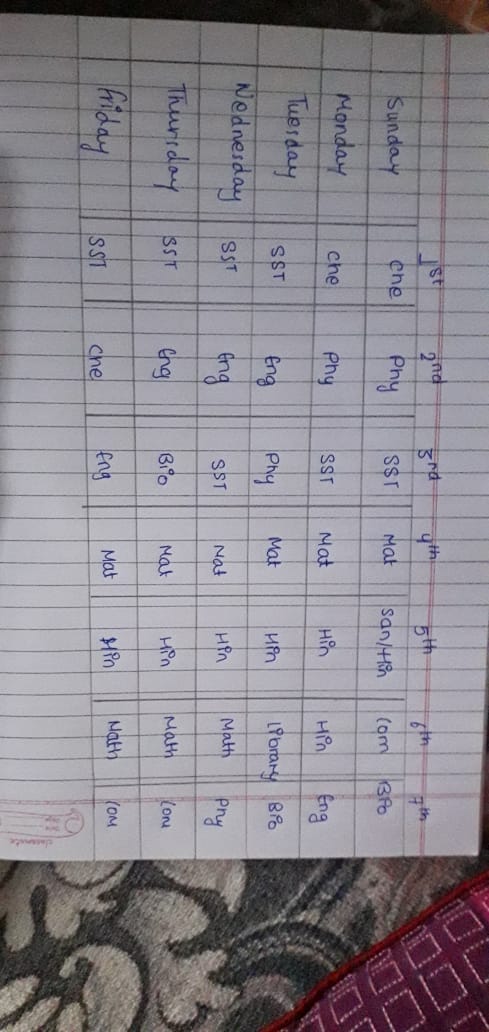 1st 2nd 3rd 4th 5th 6th 7th
Sunday Che Phy SST Mat San/Hin Com Bio
Monday Che Phy SST Mat Hin Hin Eng
Tuesday SST Eng Phy Mat Hin Library Bio
Wednesday SST Eng SST Mat Hin Math Phy
Thursday SST Eng Bio Mat Hin Math Com
Friday SST Che Eng Mat Hin Math Com
classmate
Date
Page